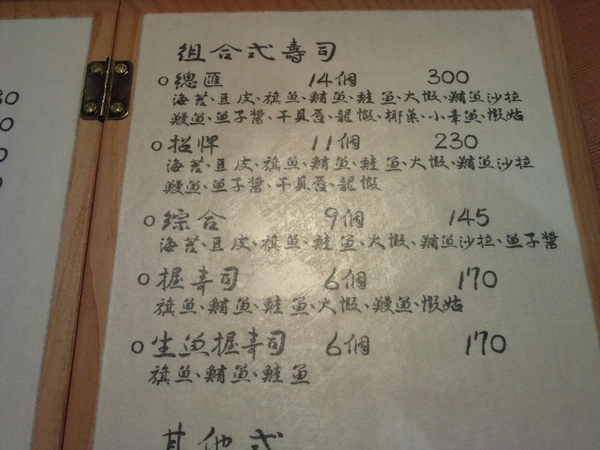 組合式壽司
總匯 14個 300
海苔、豆皮、旗魚、鮪魚、鮭魚、大蝦、鮪魚沙拉
鰻魚、魚子醬、干貝唇、龍蝦、椰菜、小章魚、蝦姑
招牌 11個 230
海苔、豆皮、旗魚、鮪魚、鮭魚、大蝦、鮪魚沙拉
鰻魚、魚子醬、干貝唇、龍蝦
綜合 9個 145
海苔、豆皮、旗魚、鮭魚、大蝦、鮪魚沙拉、魚子醬
握壽司 6個 170
旗魚、鮪魚、鮭魚、大蝦、鰻魚、蝦姑
生魚握壽司 6個 170
旗魚、鮪魚、鮭魚
其他式